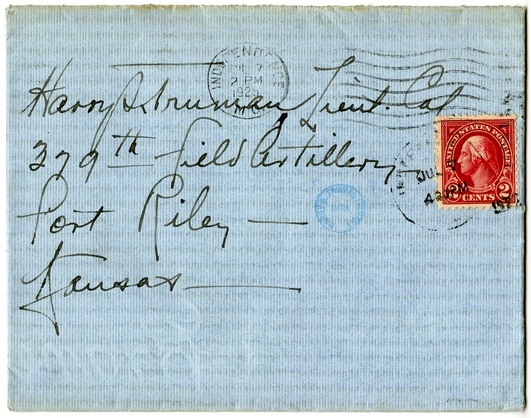 INDEPENDENCE
2 PM
MO.
Harry S. Truman Lieut. Col
379th Field Artillery
Fort Riley —
Kansas —
UNITED STATES POSTAGE
2 CENTS 2